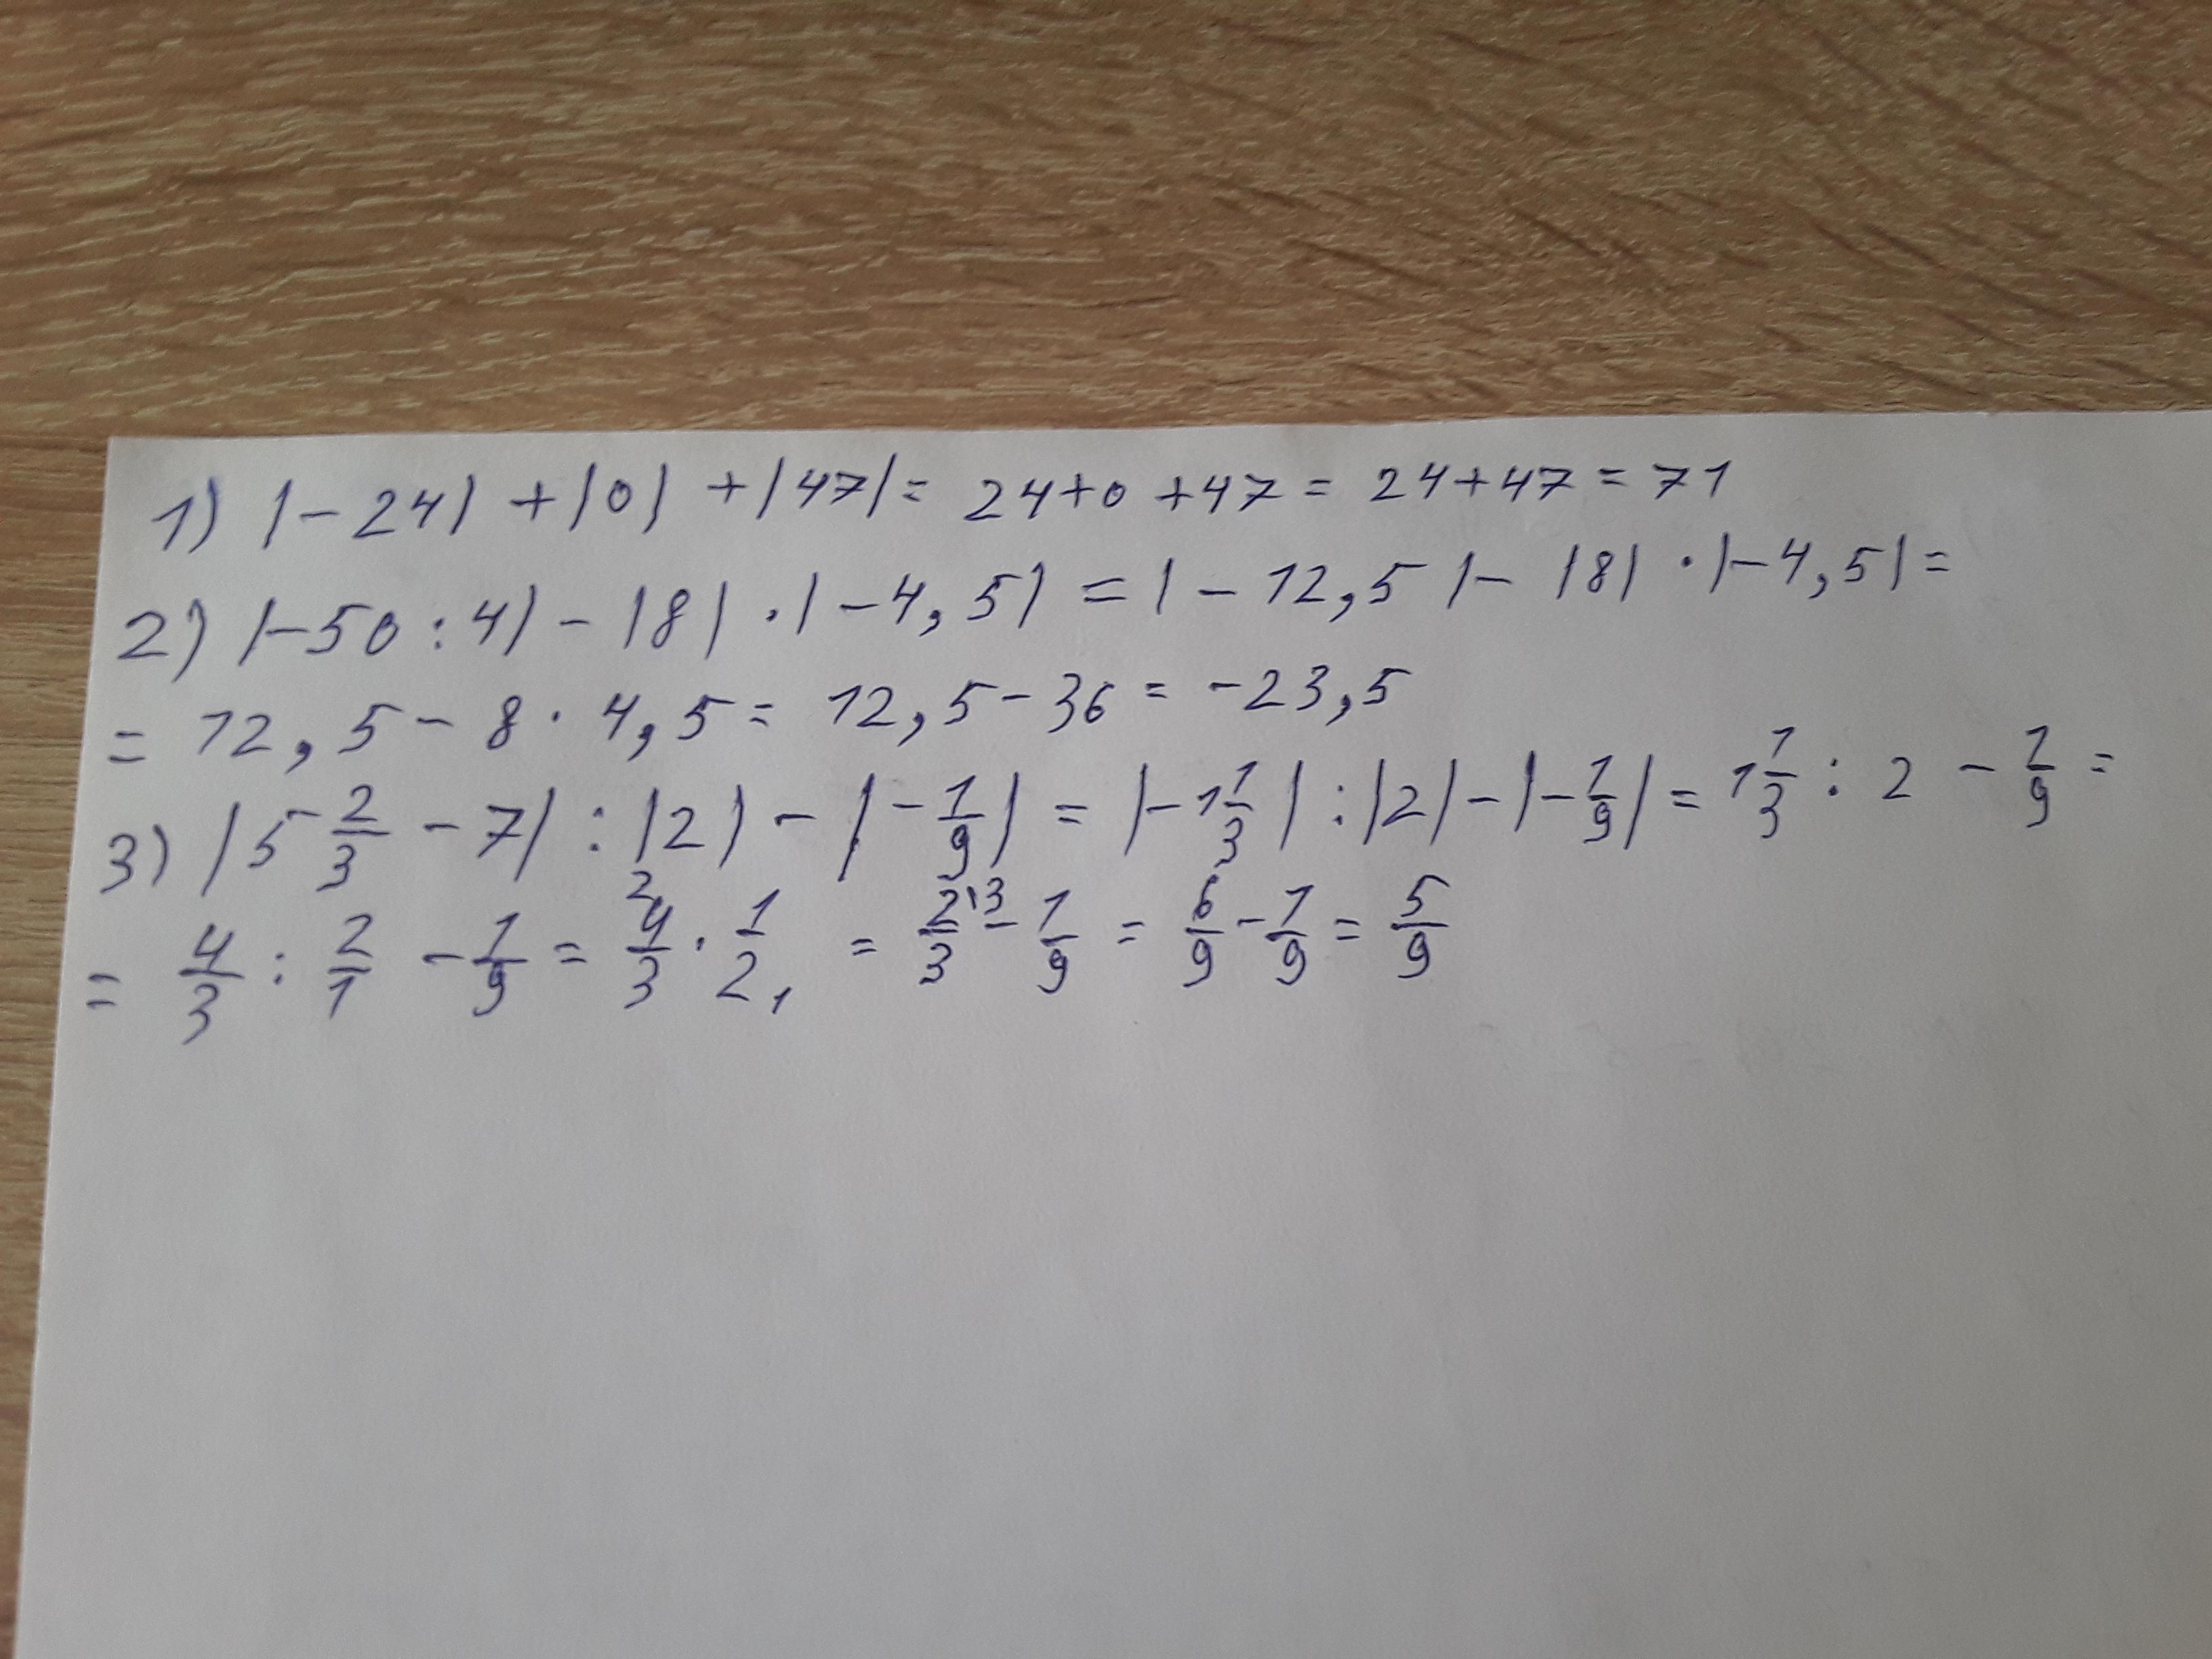 1) |-24| + |0| + |47| = 24+0+47 = 24+47 = 71
2) |-50:4| - |8| · |-4,5| = |-12,5| - |8| · |-4,5| =
= 12,5 - 8 · 4,5 = 12,5 - 36 = -23,5
3) |5 2/3 - 7| : |2| - |-1/9| = |-1 1/3| : |2| - |-1/9| = 1 1/3 : 2 - 1/9 =
= 4/3 : 2/1 - 1/9 = 4²/3 · 1/2₁ = 2/3 ⁽³ - 1/9 = 6/9 - 1/9 = 5/9